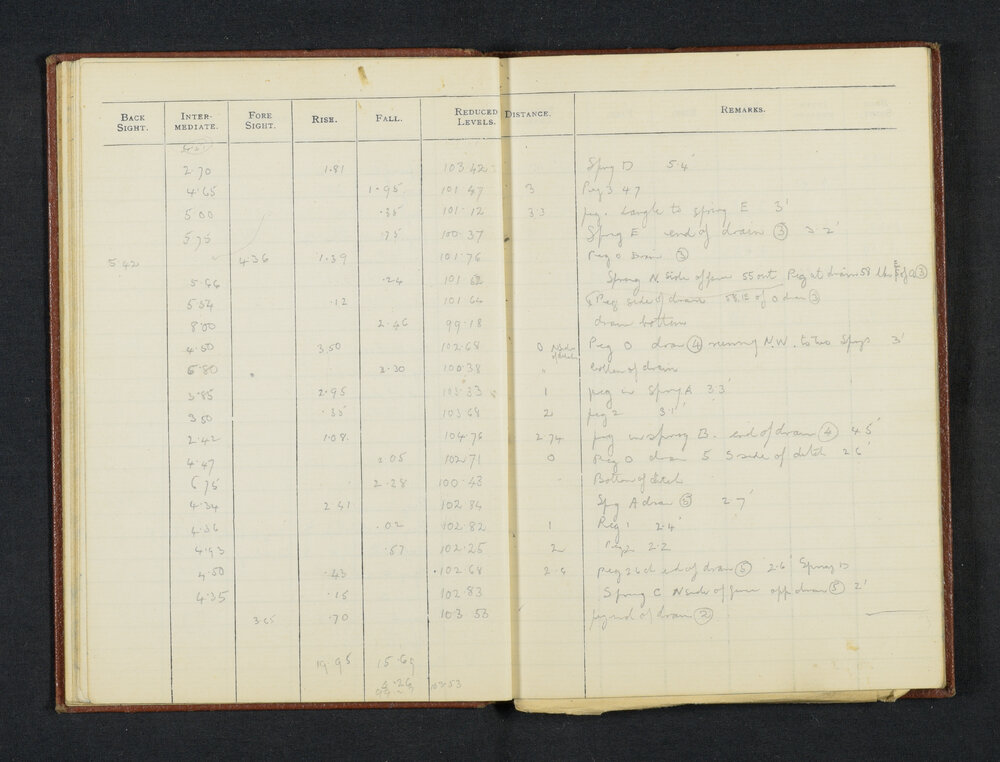 BACK SIGHT. INTER-MEDIATE. FORE SIGHT. RISE. FALL. REDUCED LEVELS. DISTANCE. REMARKS.
2.70 1.81 103.42 Spring D 5.4'
4.65 1.95 101.47 3 Peg 3 4.7
5.00 .35 101.12 3.3 peg. Langle to spring E 3'
5.75 .75 100.37 Spring E end of drain ③ 3 2'
5.42 4.36 1.39 101.76 Peg 0 Drain ③
5.66 .24 101.52 Spring N. side of fence 55 out Peg at drain 58
5.54 .12 101.64 Peg side of drain 58 E of 0 drain ③
8.00 2.46 99.18 drain bottom
4.50 3.50 102.68 0 N side of ditch Peg 0 drain ④ running N.W. to two Springs 3'
6.80 2.30 100.38 " bottom of drain
3.85 2.95 103.33 1 peg in Spring A 3.3'
3.50 .35 103.68 2 peg 2 3.1'
2.42 1.08 104.76 2.74 peg in spring B. end of drain ④ 4.5'
4.47 2.05 102.71 0 Peg 0 drain 5 S side of ditch 2.6'
6.75 2.28 100.43 Bottom of ditch
4.34 2.41 102.84 Spg A drain ⑤ 2.7'
4.36 .02 102.82 1 Peg 1 2.4'
4.93 .57 102.25 2 Peg 2 2.2
4.50 .43 102.68 2.6 peg 2.6 end of drain ⑤ 2.6' Spring B
4.35 .15 102.83 Spring C N side of fence opp drain ⑤ 2'
3.65 .70 103.53 peg end of drain ②
19.95 15.69
4.26 103.53